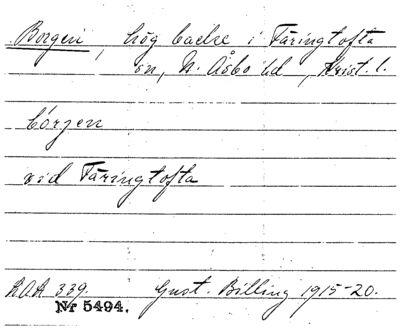 Borgen, hög backe i Färingtofta
sn, N. Åsbo hd, Krist. l.
bórjen
vid Färingtofta
AOA 339. Gust. Billing 1915-20.
Nr 5494.